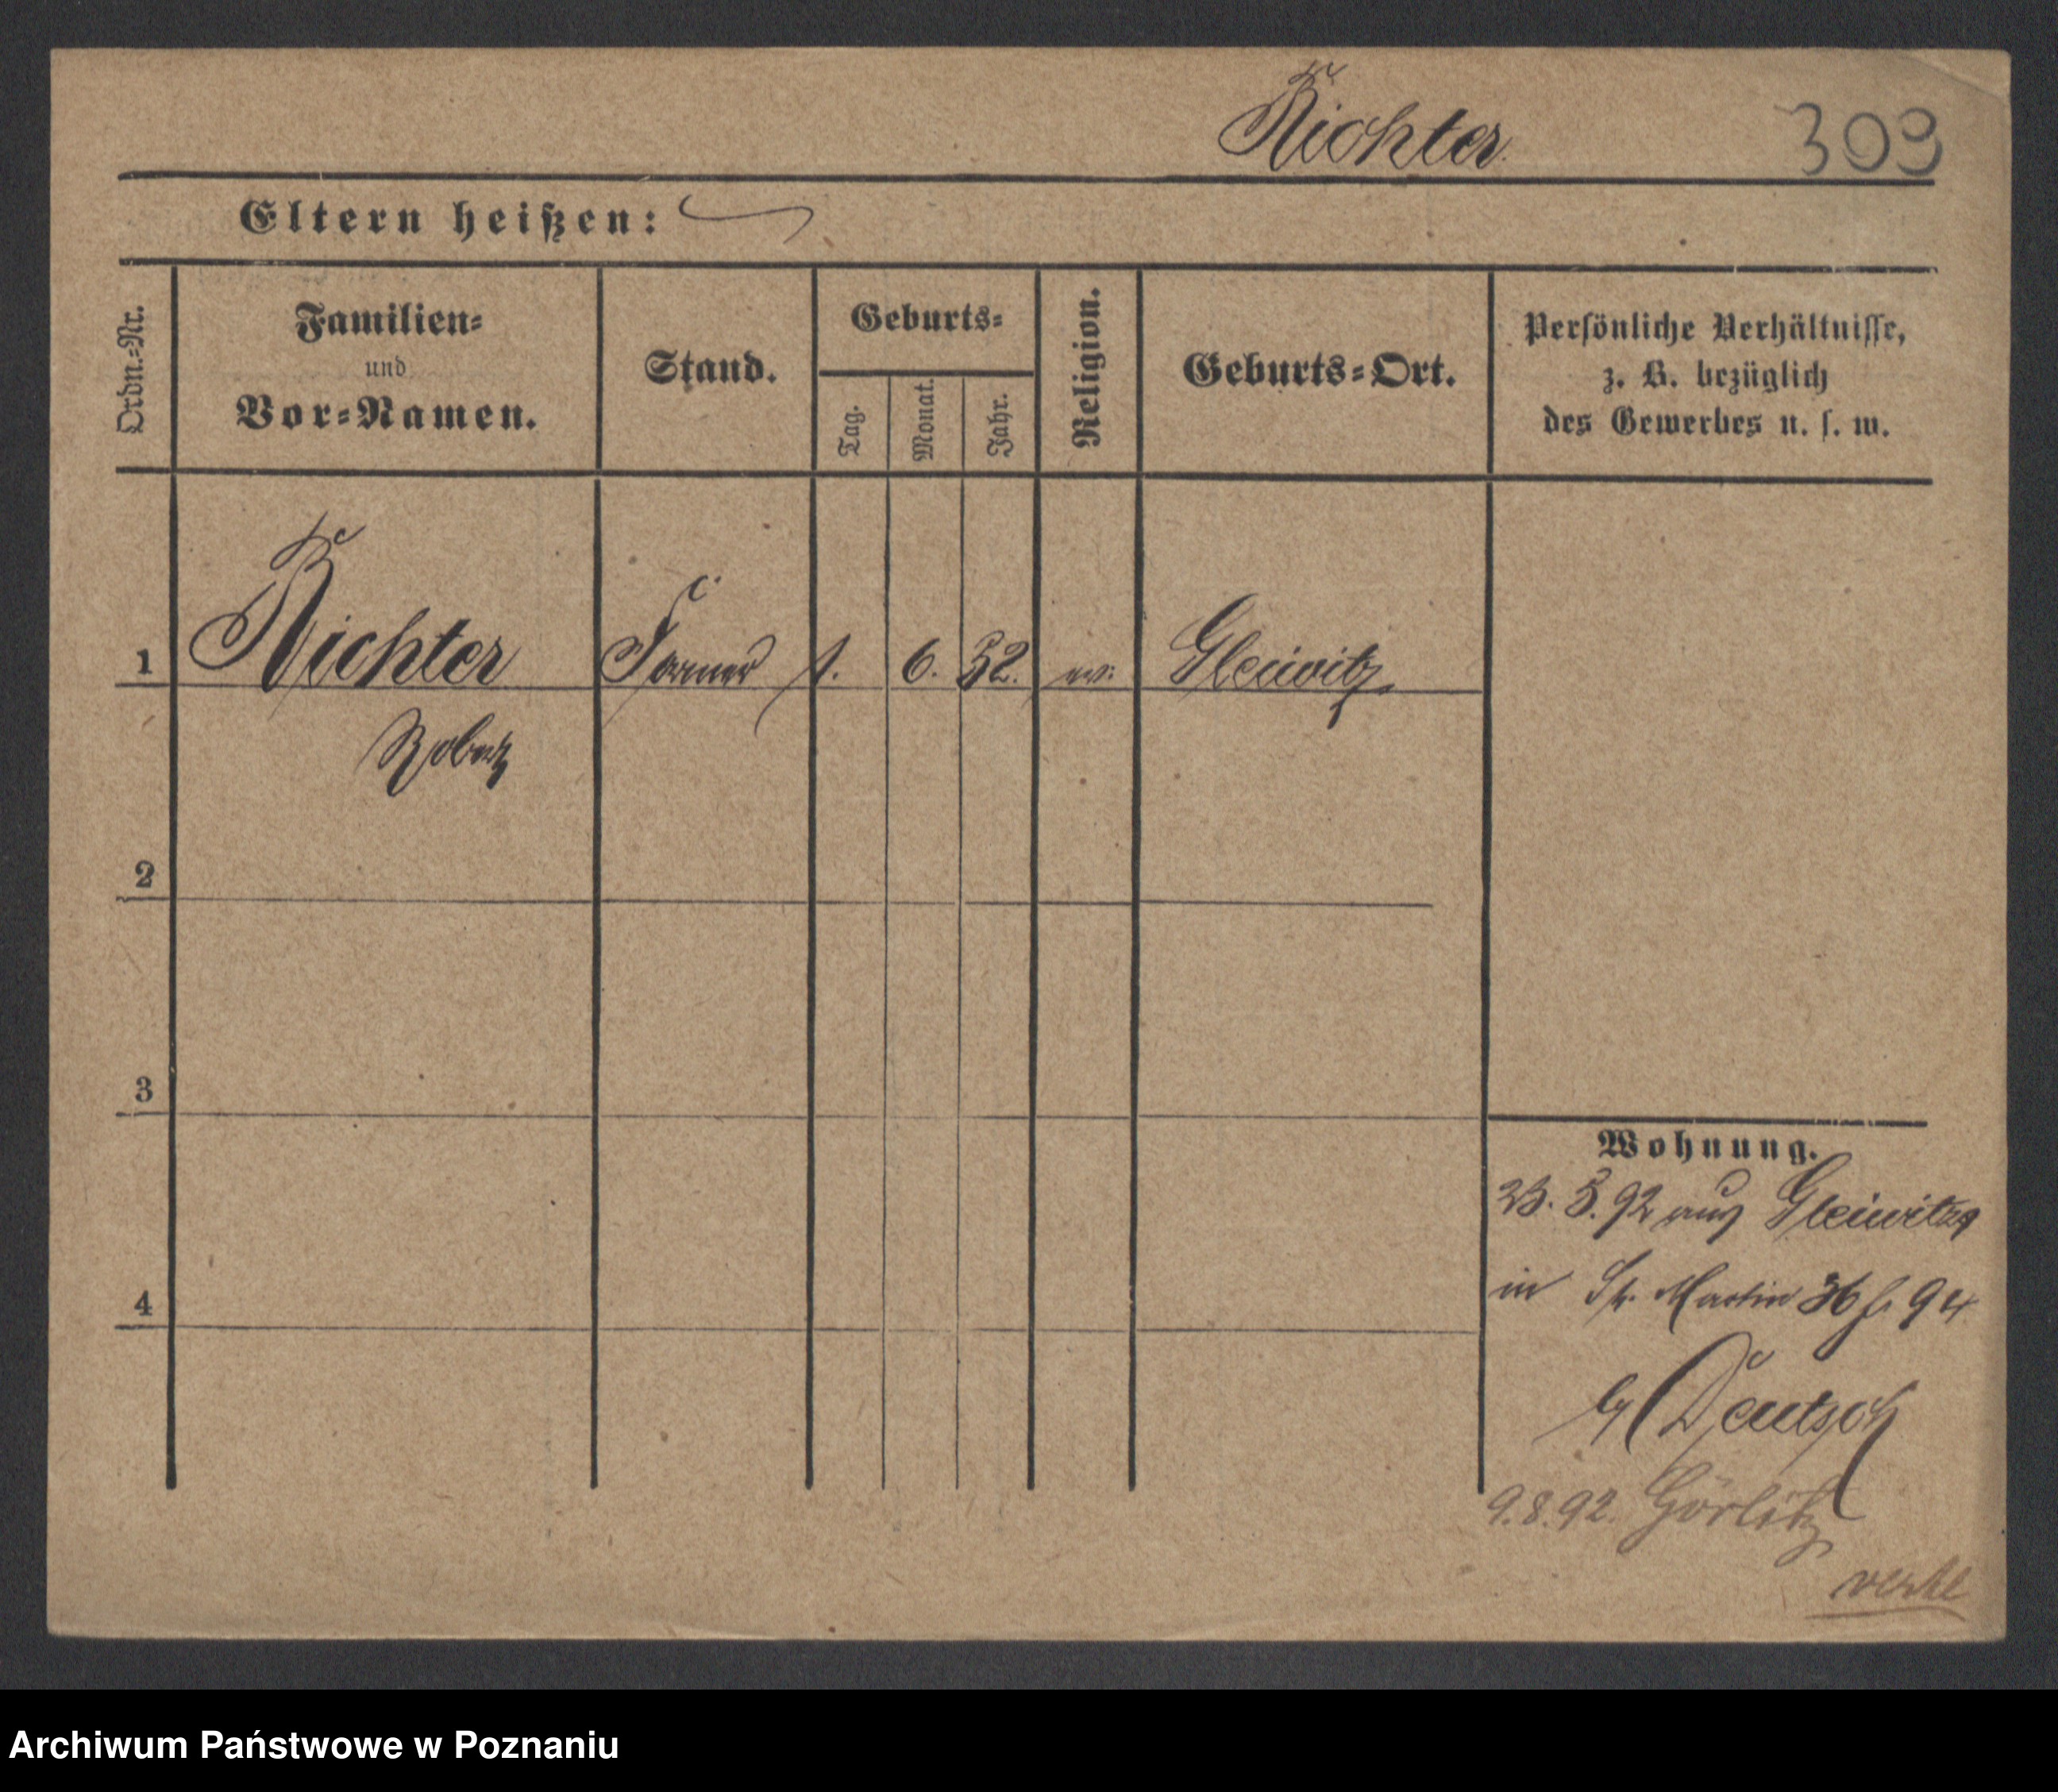 Richter
309
Eltern heißen:
Ordn.-Nr.
Familien-
und
Vor-Namen.
Stand.
Geburts-
Tag.
Monat.
Jahr.
Religion.
Geburts-Ort.
Persönliche Verhältnisse,
z. B. bezüglich
des Gewerbes u. s. w.
1 Richter Former 1. 6. 52. ev. Gleiwitz
Robert
2
3
4
Wohnung.
23. 5. 92 aus Gleiwitz
in St. Martin 36 94
b/ Deutsch
9.8.92. Görlitz
Archiwum Państwowe w Poznaniu